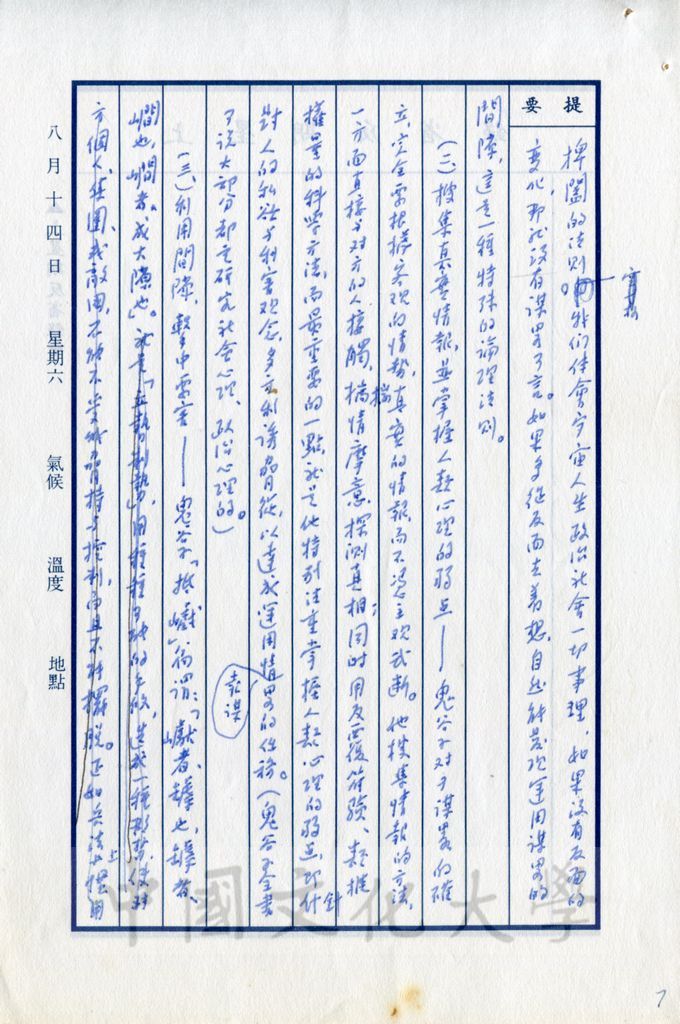 提要
捭闔的法則。我們体會宇宙人生政治社會一切事理,如果沒有反面的
變化,那就沒有謀畧可言。如果多從反面去着想,自然能發現運用謀畧的
間隙,這是一種特殊的論理法則。
(二)搜集真實情報,並掌握人類心理的弱点——鬼谷子对于謀畧的確
立,完全要根據客观的情勢,真實的情報,而不憑主观武断。他搜集情報的方法,
一方面直接与对方的人接觸,揣情摩意,探測真相;同時用反覆符驗、類推
權量的科學方法,而最重要的一點,就是他特別注重掌握人類心理的弱点,即針
對人的私欲与利害观念,多方利誘脅從,以達成運用情畧的任務。(鬼谷子全書
可说大部分都是研究社会心理、政治心理的)
(三)利用間隙,擊中要害——鬼谷子「抵巇」篇謂:「巇者,罅也,罅者、
㵎也,㵎者,成大隙也。」就是「立勢制勢」用種種可能的手段,造成一種形势,使对
方個人、集團、或敵國,不能不受我脅持与控制,而且不能擺脱。正如兵法上
八月十四日 星期六 氣候 溫度 地點
中國文化大學
7